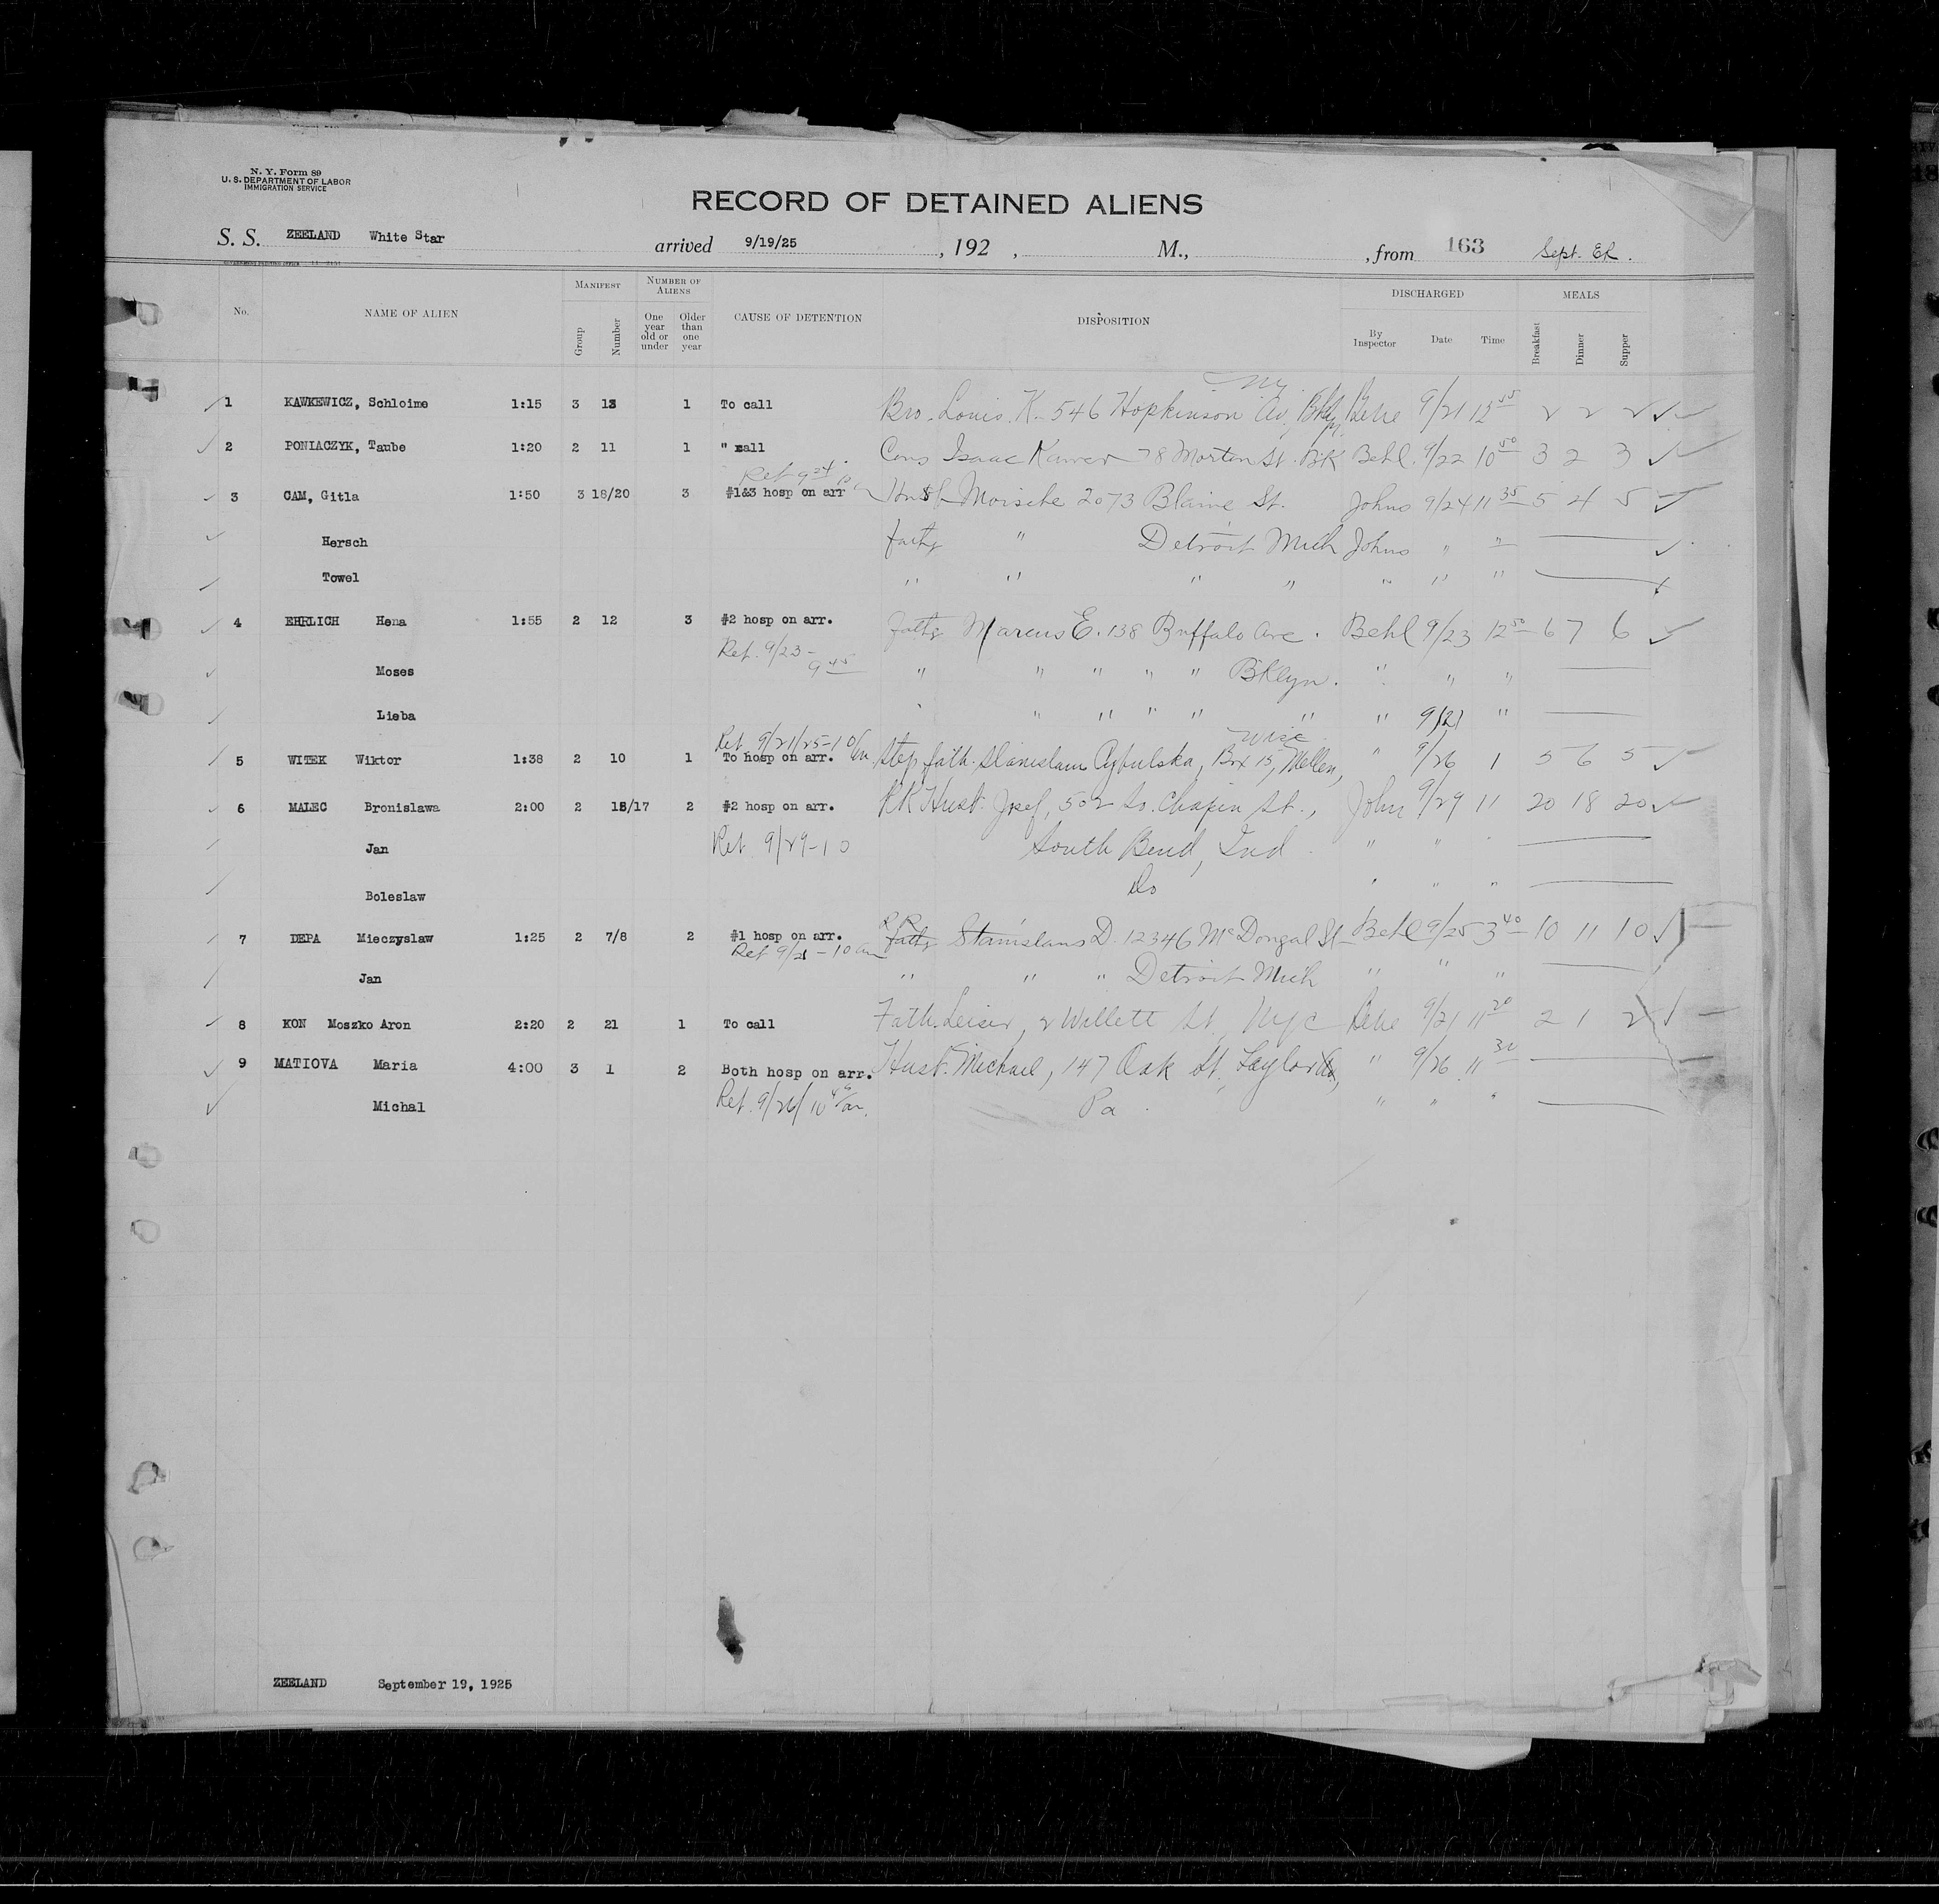 N. Y. Form 89
U. S. DEPARTMENT OF LABOR
IMMIGRATION SERVICE
RECORD OF DETAINED ALIENS
S. S. ZEELAND White Star arrived 9/19/25, 192 , M., , from 163 Sept. Er.
No. NAME OF ALIEN MANIFEST Group Number NUMBER OF ALIENS One year old or under Older than one year CAUSE OF DETENTION DISPOSITION DISCHARGED By Inspector Date Time MEALS Breakfast Dinner Supper
ny.
1 KAWKEWICZ, Schloime 1:15 3 13 1 To call Bro. Louis K. 546 Hopkinson Av, Bkly 9/21 2 2 2
2 PONIACZYK, Taube 1:20 2 11 1 " call Cous Isaac 78 Morton St. Bk Behl. 9/22 10 50 3 2 3
Ret 9 24
3 CAM, Gitla 1:50 3 18/20 3 #1&3 hosp on arr Husb Moische 2073 Blaine St. Johns 9/24 11 35 5 4 5
Hersch fathr " Detroit Mich Johns " "
Towel " " " " " " "
4 EHRLICH Hena 1:55 2 12 3 #2 hosp on arr. fathr Marcus E. 138 Buffalo Ave. Behl 9/23 12 50 6 7 6
Ret. 9/23 - 9 45
Moses " " " " " Bklyn. " " "
Lieba " " " " " " 9/21 "
Ret. 9/21/25-10 am Wisc
5 WITEK Wiktor 1:38 2 10 1 To hosp on arr. Step fath. Stanislaus Cybulska, Box 15, Mellen, " 9/26 1 5 6 5
6 MALEC Bronislawa 2:00 2 15/17 2 #2 hosp on arr. RR Husb. Josef, 502 So. Chapin St., John 9/29 11 20 18 20
Jan Ret 9/29-10 South Bend, Ind " " "
Boleslaw Do " " "
RR
7 DEPA Mieczyslaw 1:25 2 7/8 2 #1 hosp on arr. fathr Stanislaus D. 12346 McDongal St Behl 9/25 3 40 10 11 10
Ret 9/21 - 10 am
Jan " " " Detroit Mich " " "
8 KON Moszko Aron 2:20 2 21 1 To call Fath. Leiser, 2 Willett St, NYC 9/21 11 20 2 1 2
9 MATIOVA Maria 4:00 3 1 2 Both hosp on arr. Husb. Michael, 147 Oak St, Taylor, " 9/26 11 30
Michal Ret. 9/26/ 10 45 am. Pa. " " "
ZEELAND September 19, 1925